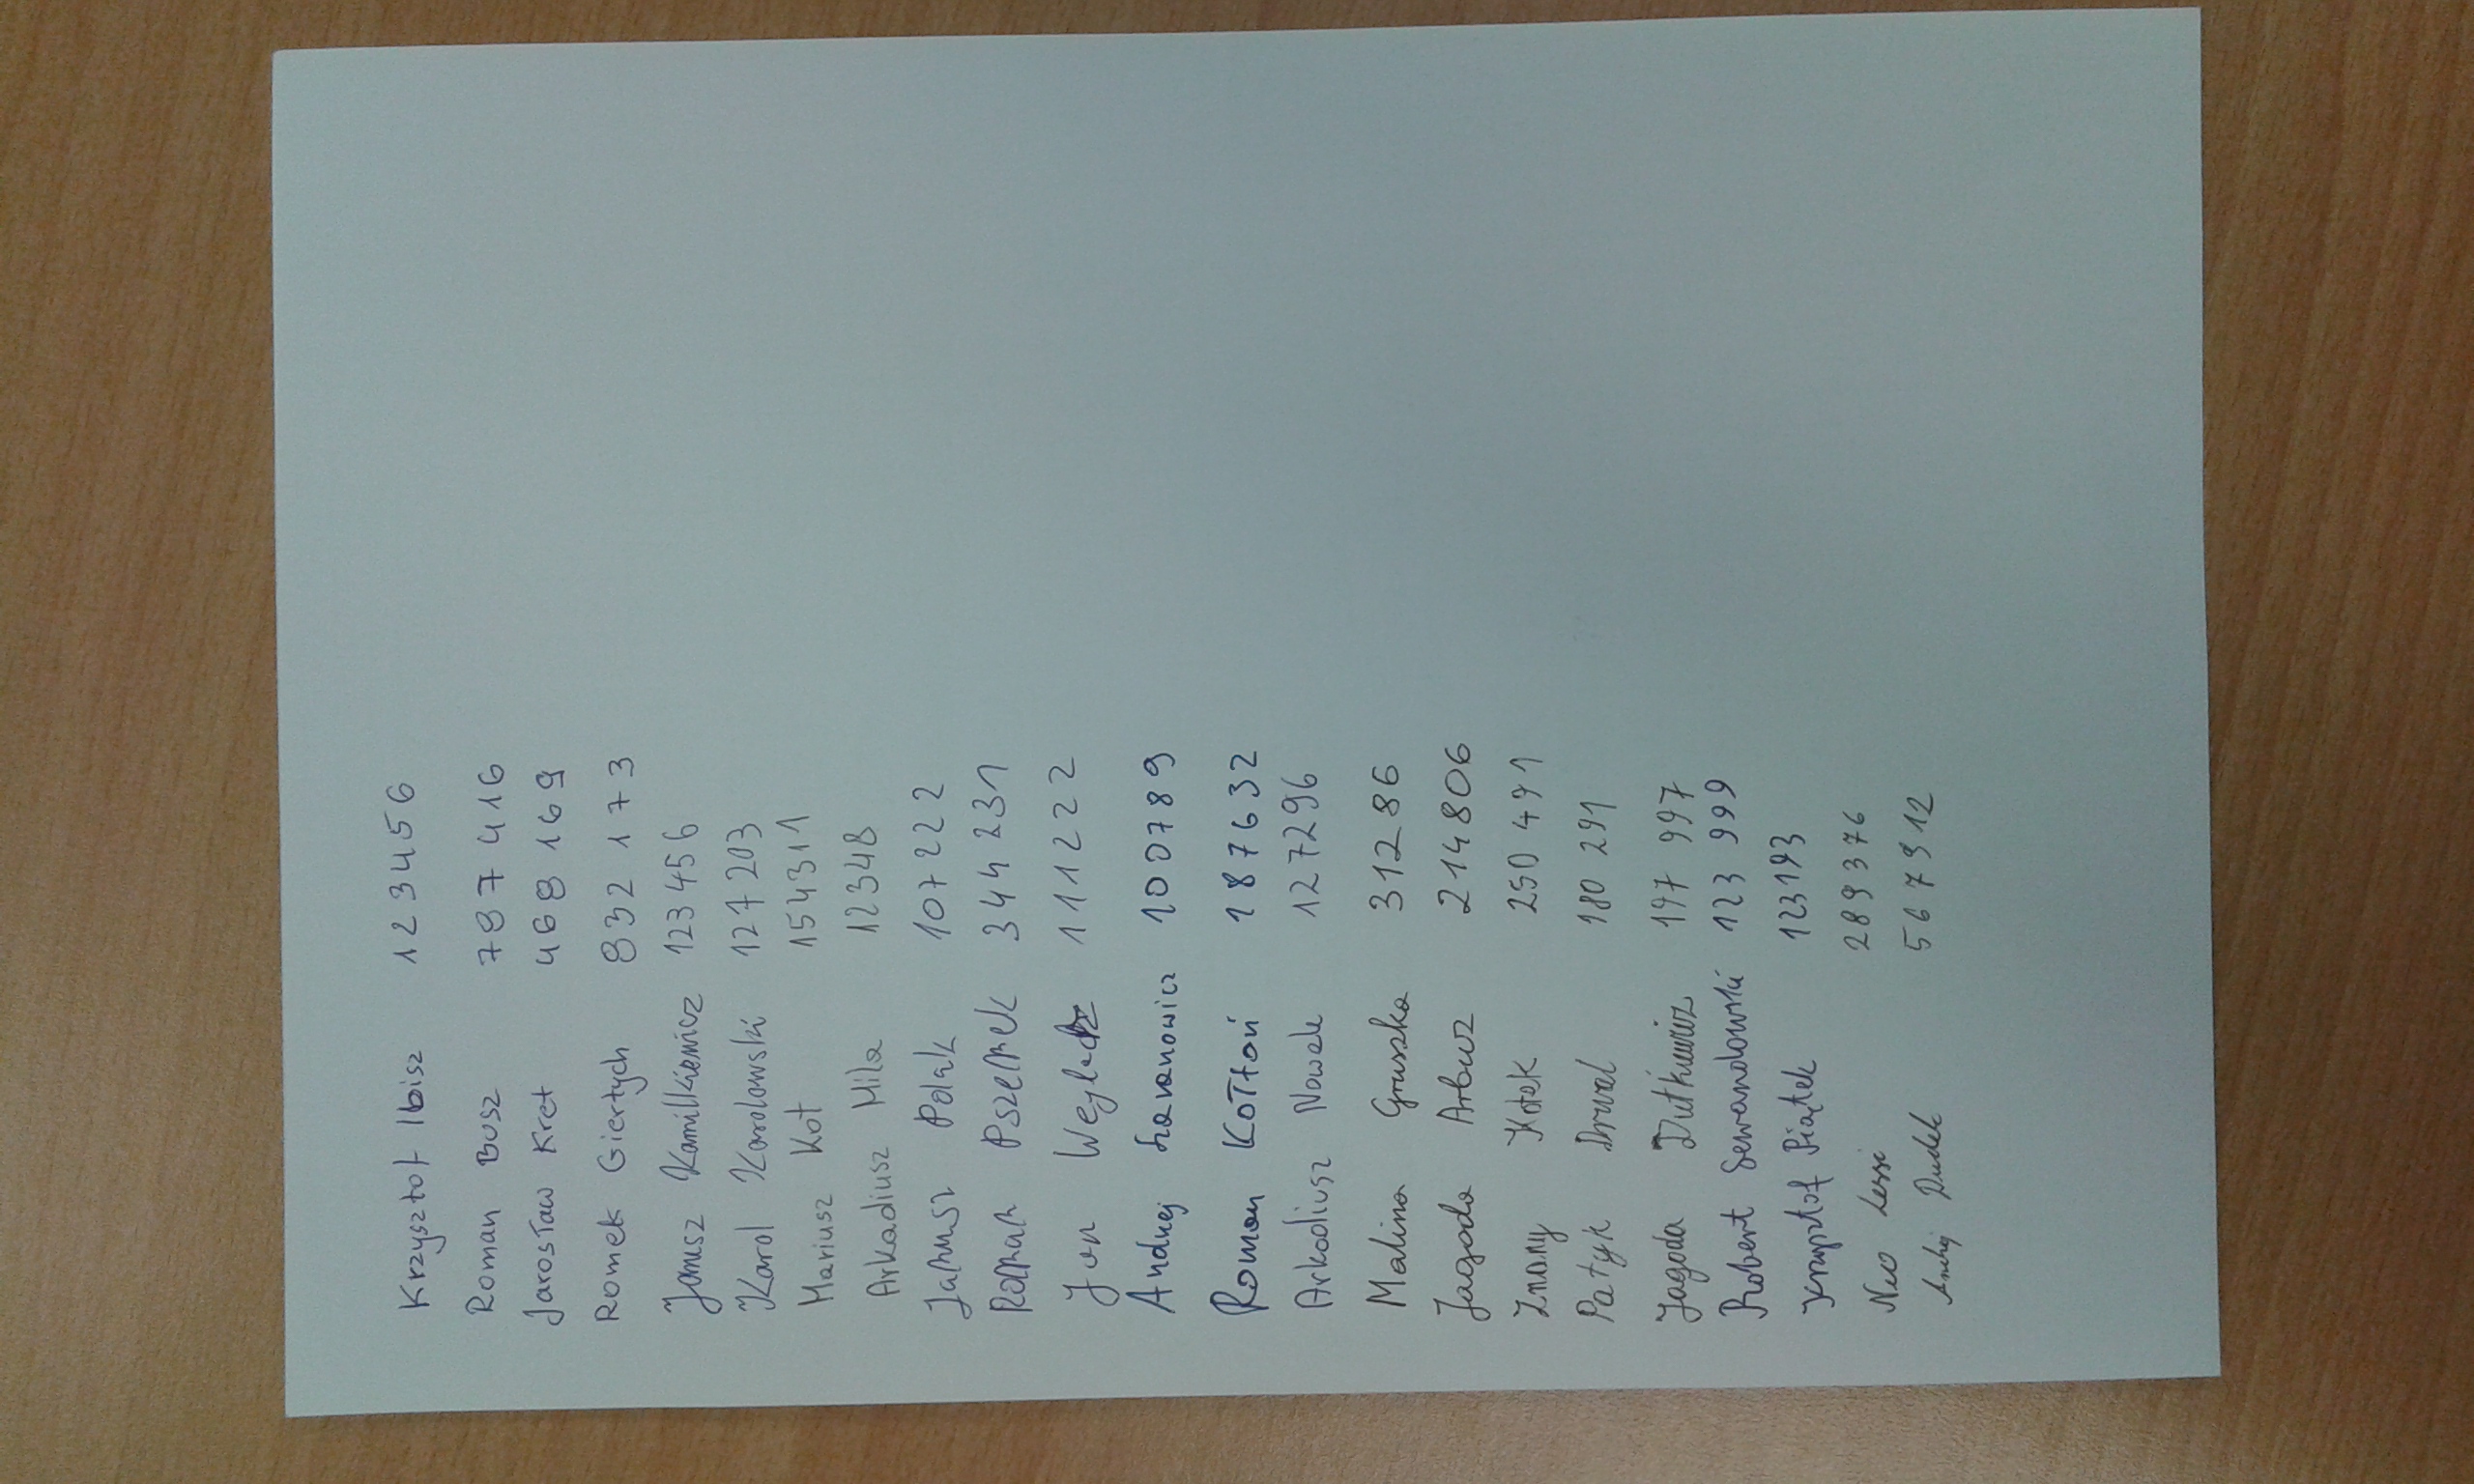 Krzysztof Ibisz 123456
Roman Busz 787 416
Jarosław Kret 468 169
Romek Giertych 832 173
Janusz Kamilkiewicz 123 456
Karol Karolowski 127 203
Mariusz Kot 154311
Arkadiusz Mila 12348
Janusz Polak 107 222
Roman Pszemek 344 231
Jan 111222
Andrzej 100789
Roman Kołtoń 187632
Arkadiusz Nowak 127296
Malina Gruszka 31286
Jagoda Arbuz 214806
Znany Kotek 250 491
Patyk Drwal 180 291
Jagoda Dutkiewicz 197 997
Robert Lewandowski 123 999
Krzysztof Piątek 123193
Neo Lessi 289376
Andrzej Dudek 567912